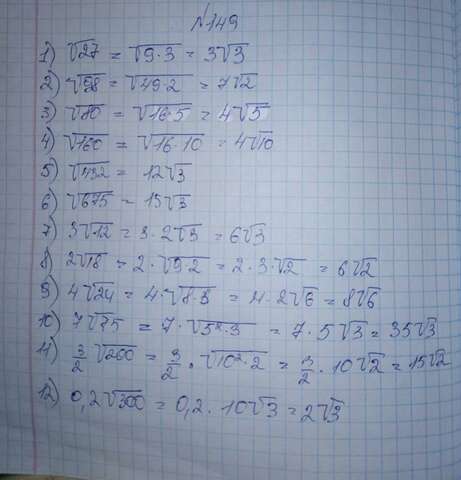 №149
1) √27 = √9·3 = 3√3
2) √98 = √49·2 = 7√2
3) √80 = √16·5 = 4√5
4) √160 = √16·10 = 4√10
5) √432 = 12√3
6) √675 = 15√3
7) 3√12 = 3·2√3 = 6√3
8) 2√18 = 2·√9·2 = 2·3·√2 = 6√2
9) 4√24 = 4·√8·3 = 4·2√6 = 8√6
10) 7√75 = 7·√5²·3 = 7·5√3 = 35√3
11) 3/2 √200 = 3/2 · √10²·2 = 3/2 · 10√2 = 15√2
12) 0,2√300 = 0,2·10√3 = 2√3